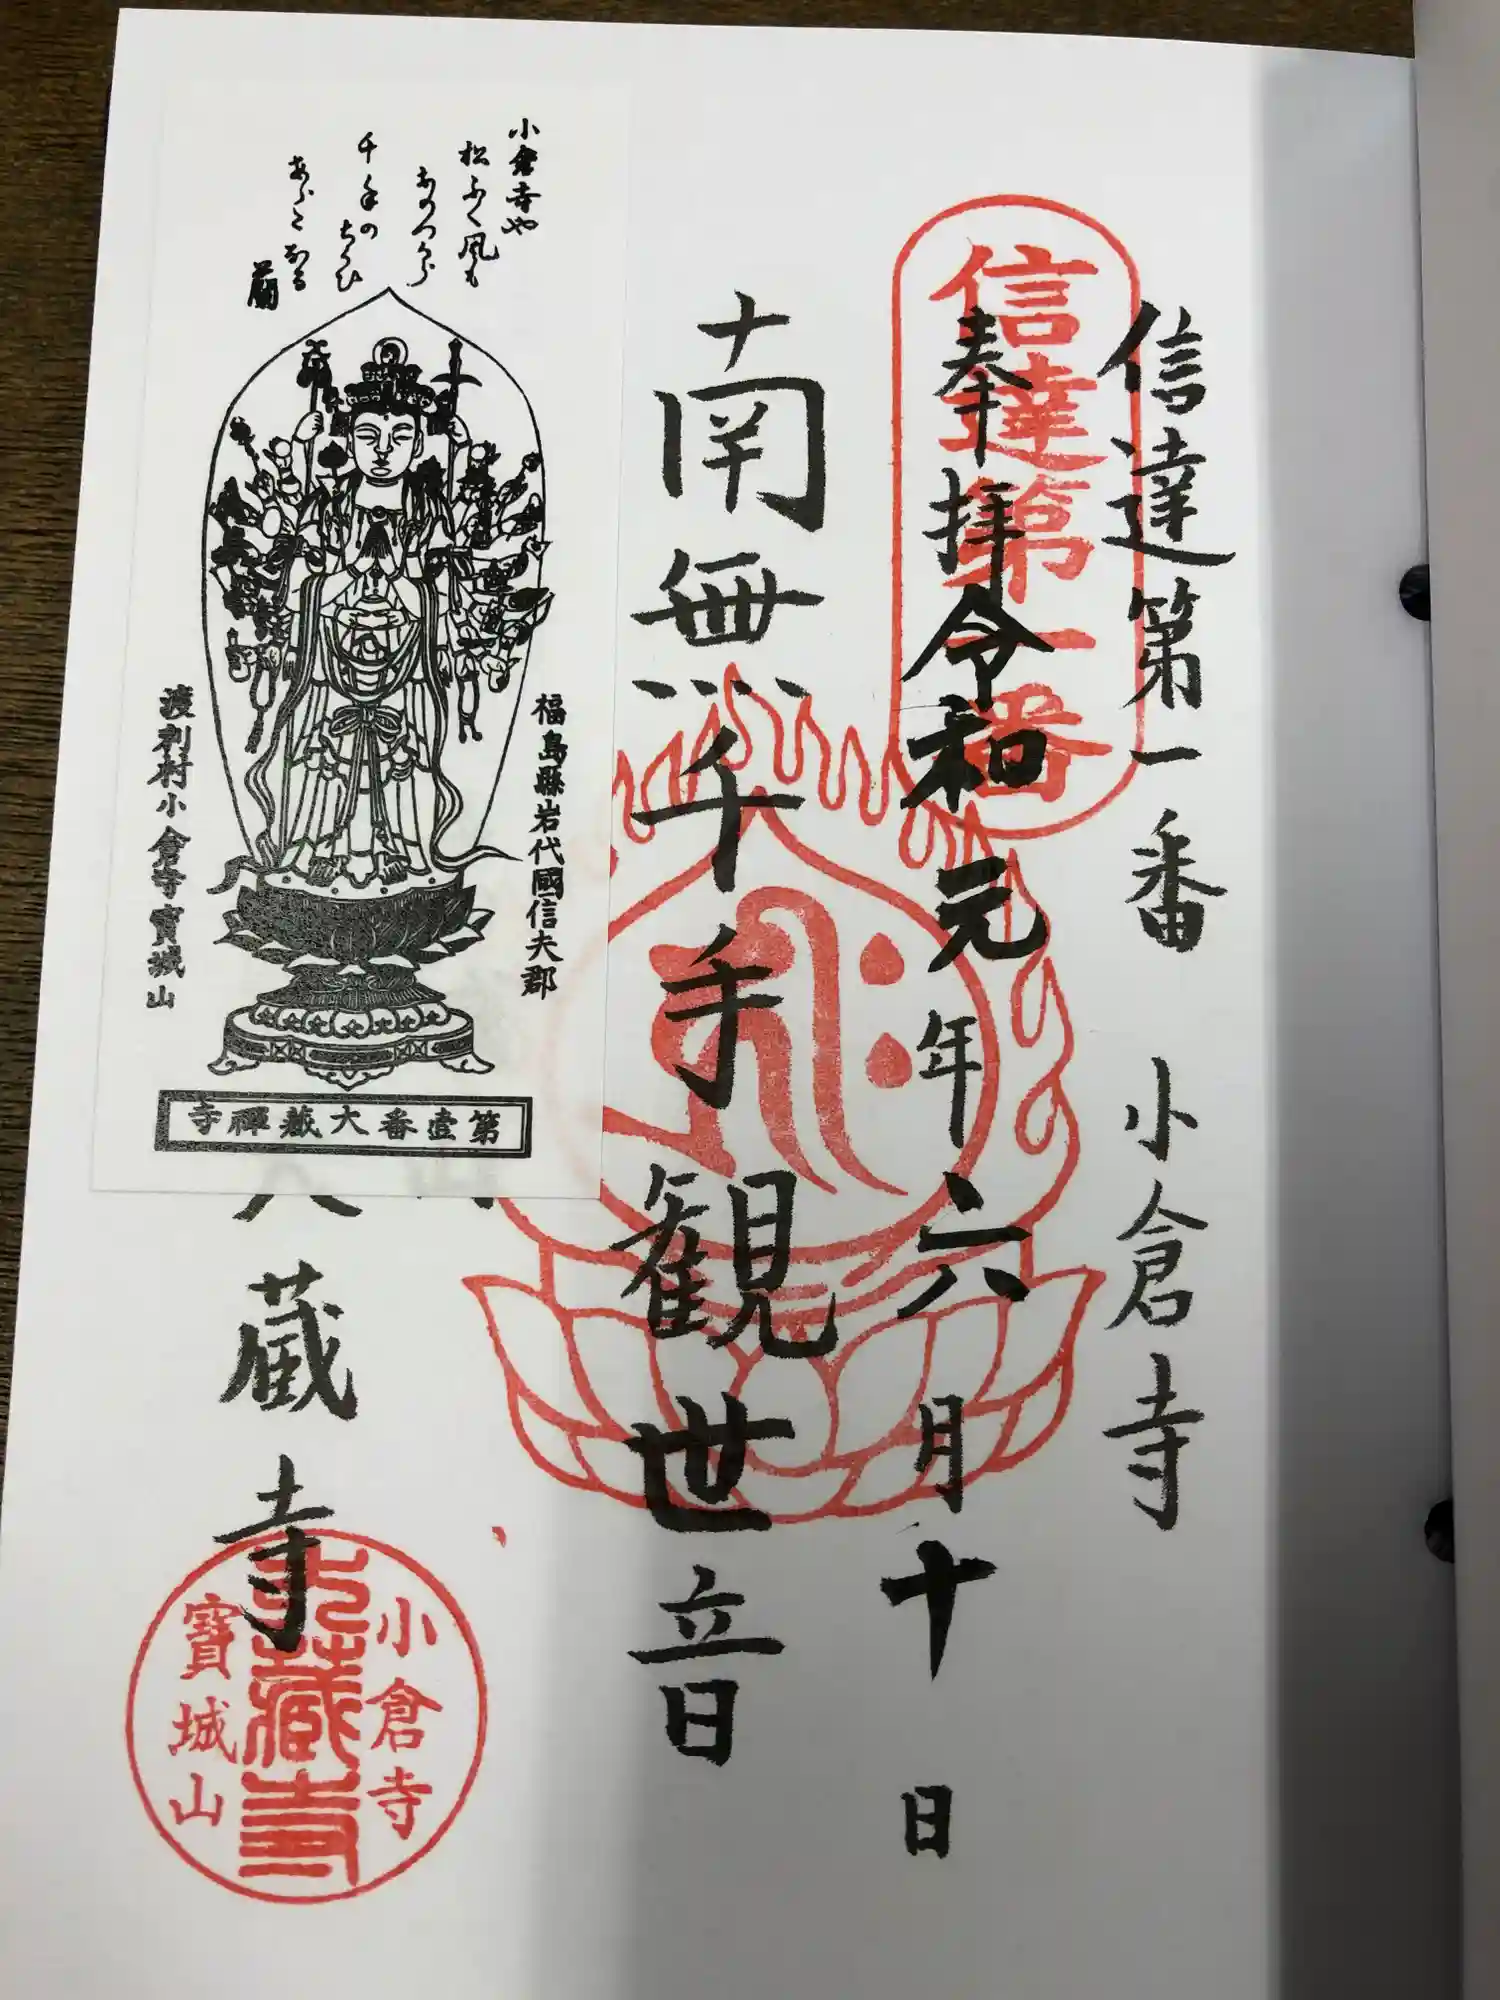 信達第一番 小倉寺
信達第一番
奉拝 令和元年六月十日
南無千手観世音
蔵寺
小倉寺
大蔵寺
寶城山
小倉寺や
松ふく風も
おのつから
千手のちかひ
あらたなる
福島縣岩代國信夫郡
渡利村小倉寺寶城山
第壹番大蔵禪寺